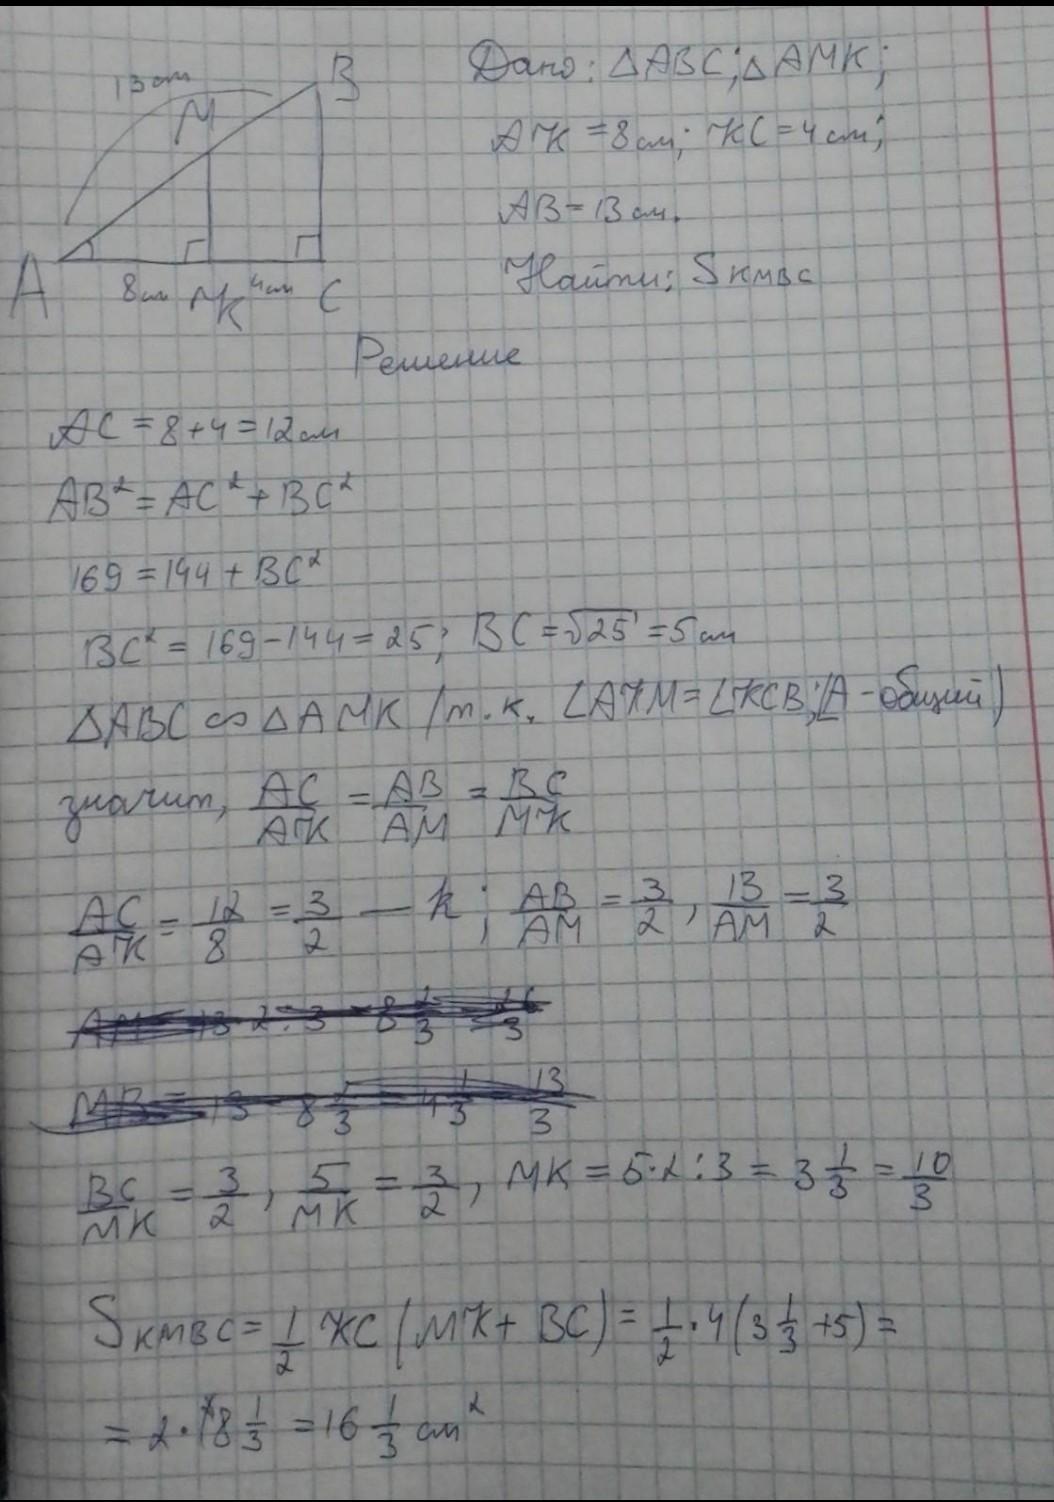 13 см
B
M
A
8см
K
4см
C
Дано: △ABC; △AMK;
AK = 8 см; KC = 4 см;
AB = 13 см.
Найти: S KMBC
Решение
AC = 8 + 4 = 12 см
AB² = AC² + BC²
169 = 144 + BC²
BC² = 169 - 144 = 25; BC = √25 = 5 см
△ABC ∽ △AMK (т.к. ∠AKM = ∠KCB; ∠A - общий)
значит, AC/AK = AB/AM = BC/MK
AC/AK = 12/8 = 3/2 — k; AB/AM = 3/2, 13/AM = 3/2
BC/MK = 3/2, 5/MK = 3/2, MK = 5·2:3 = 3 1/3 = 10/3
S KMBC = 1/2 KC (MK + BC) = 1/2 · 4 (3 1/3 + 5) =
= 2 · 8 1/3 = 16 1/3 см²